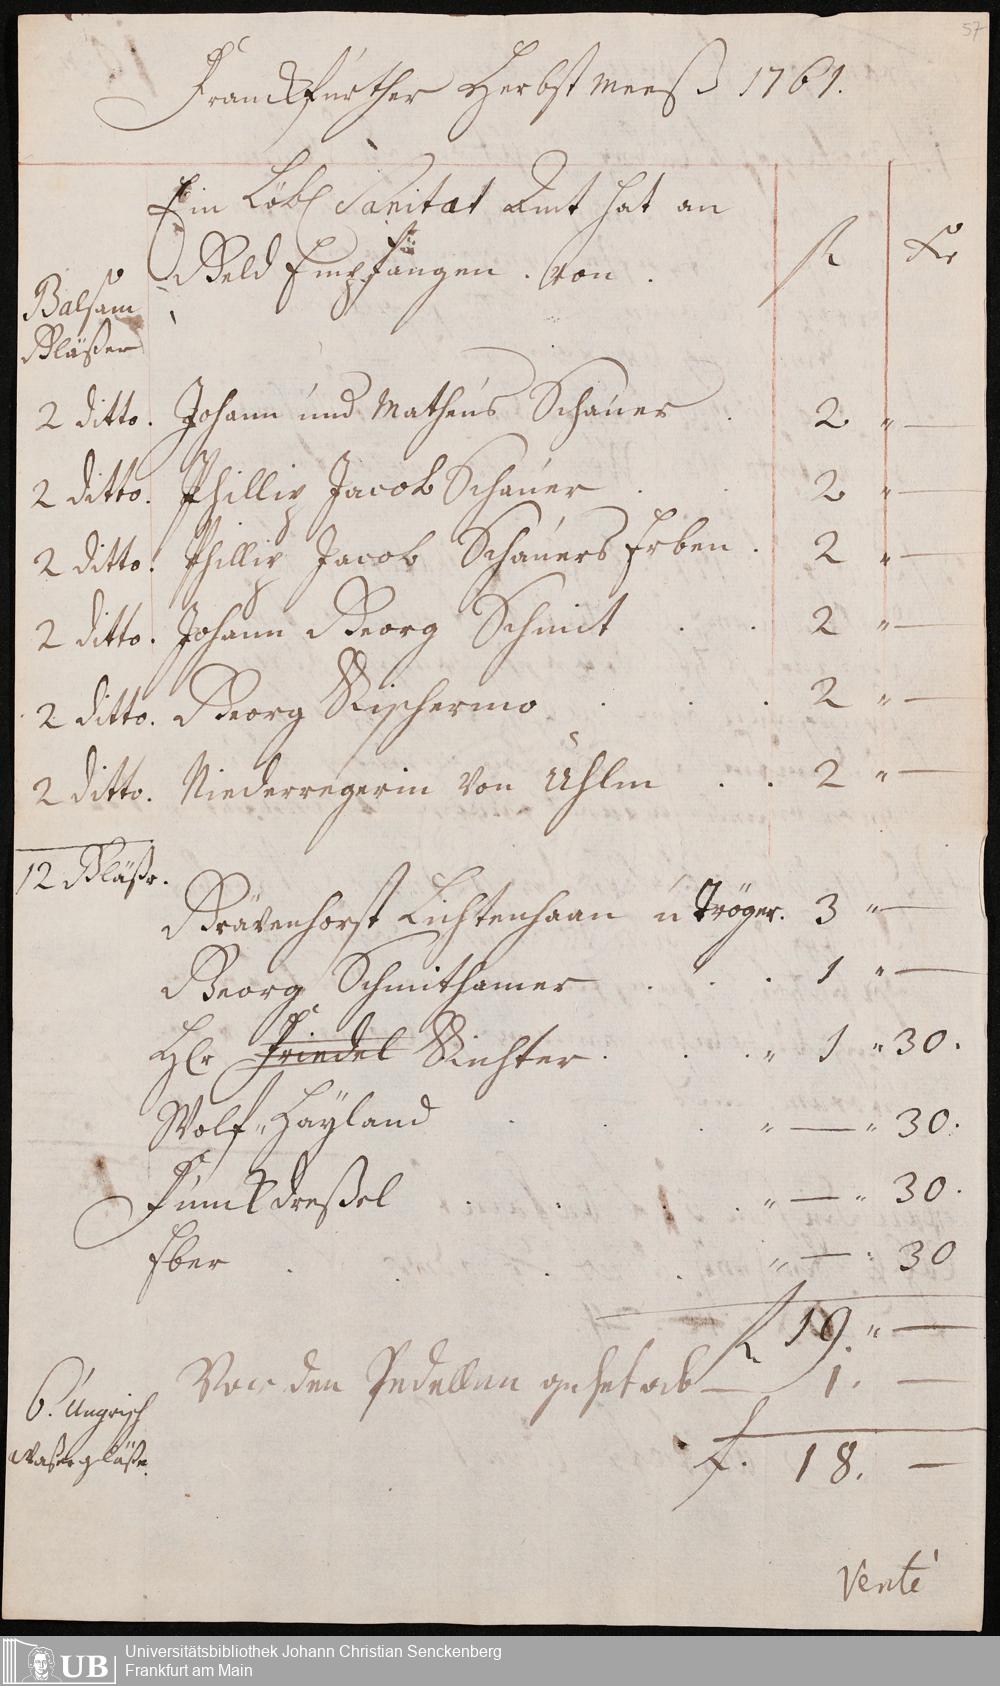 57
Franckfurther Herbst Meeß 1761.
Ein Löbl Sanitæt Amt hat an
Geld Empfangen. von.
fl
Kr
Balsam
Gläßer
2 ditto. Johann und Matheus Schauer . 2 " —
2 ditto. Phillip Jacob Schauer . . 2 " —
2 ditto. Phillip Jacob Schauers Erben . 2 " —
2 ditto. Johann Georg Schmit . . 2 " —
2 ditto. Georg . . . 2 " —
2 ditto. Niederregerin von Uhlm . . 2 " —
12 Gläßr.
Grävenhorst Lichtenhaan u Tröger. 3 " —
Georg Schmithamer . . . 1 " —
Hr Friedel Richter . . . " 1 " 30.
Wolf " Hayland . . . " — " 30.
Funck dreßel . . . " — " 30.
Eber . . . . " — " 30
fl 19. " —
Vor den Pedellen gehet ab — 1. —
6. Ungrisch
waßer gläße.
f. 18. —
Venté
UB
Universitätsbibliothek Johann Christian Senckenberg
Frankfurt am Main